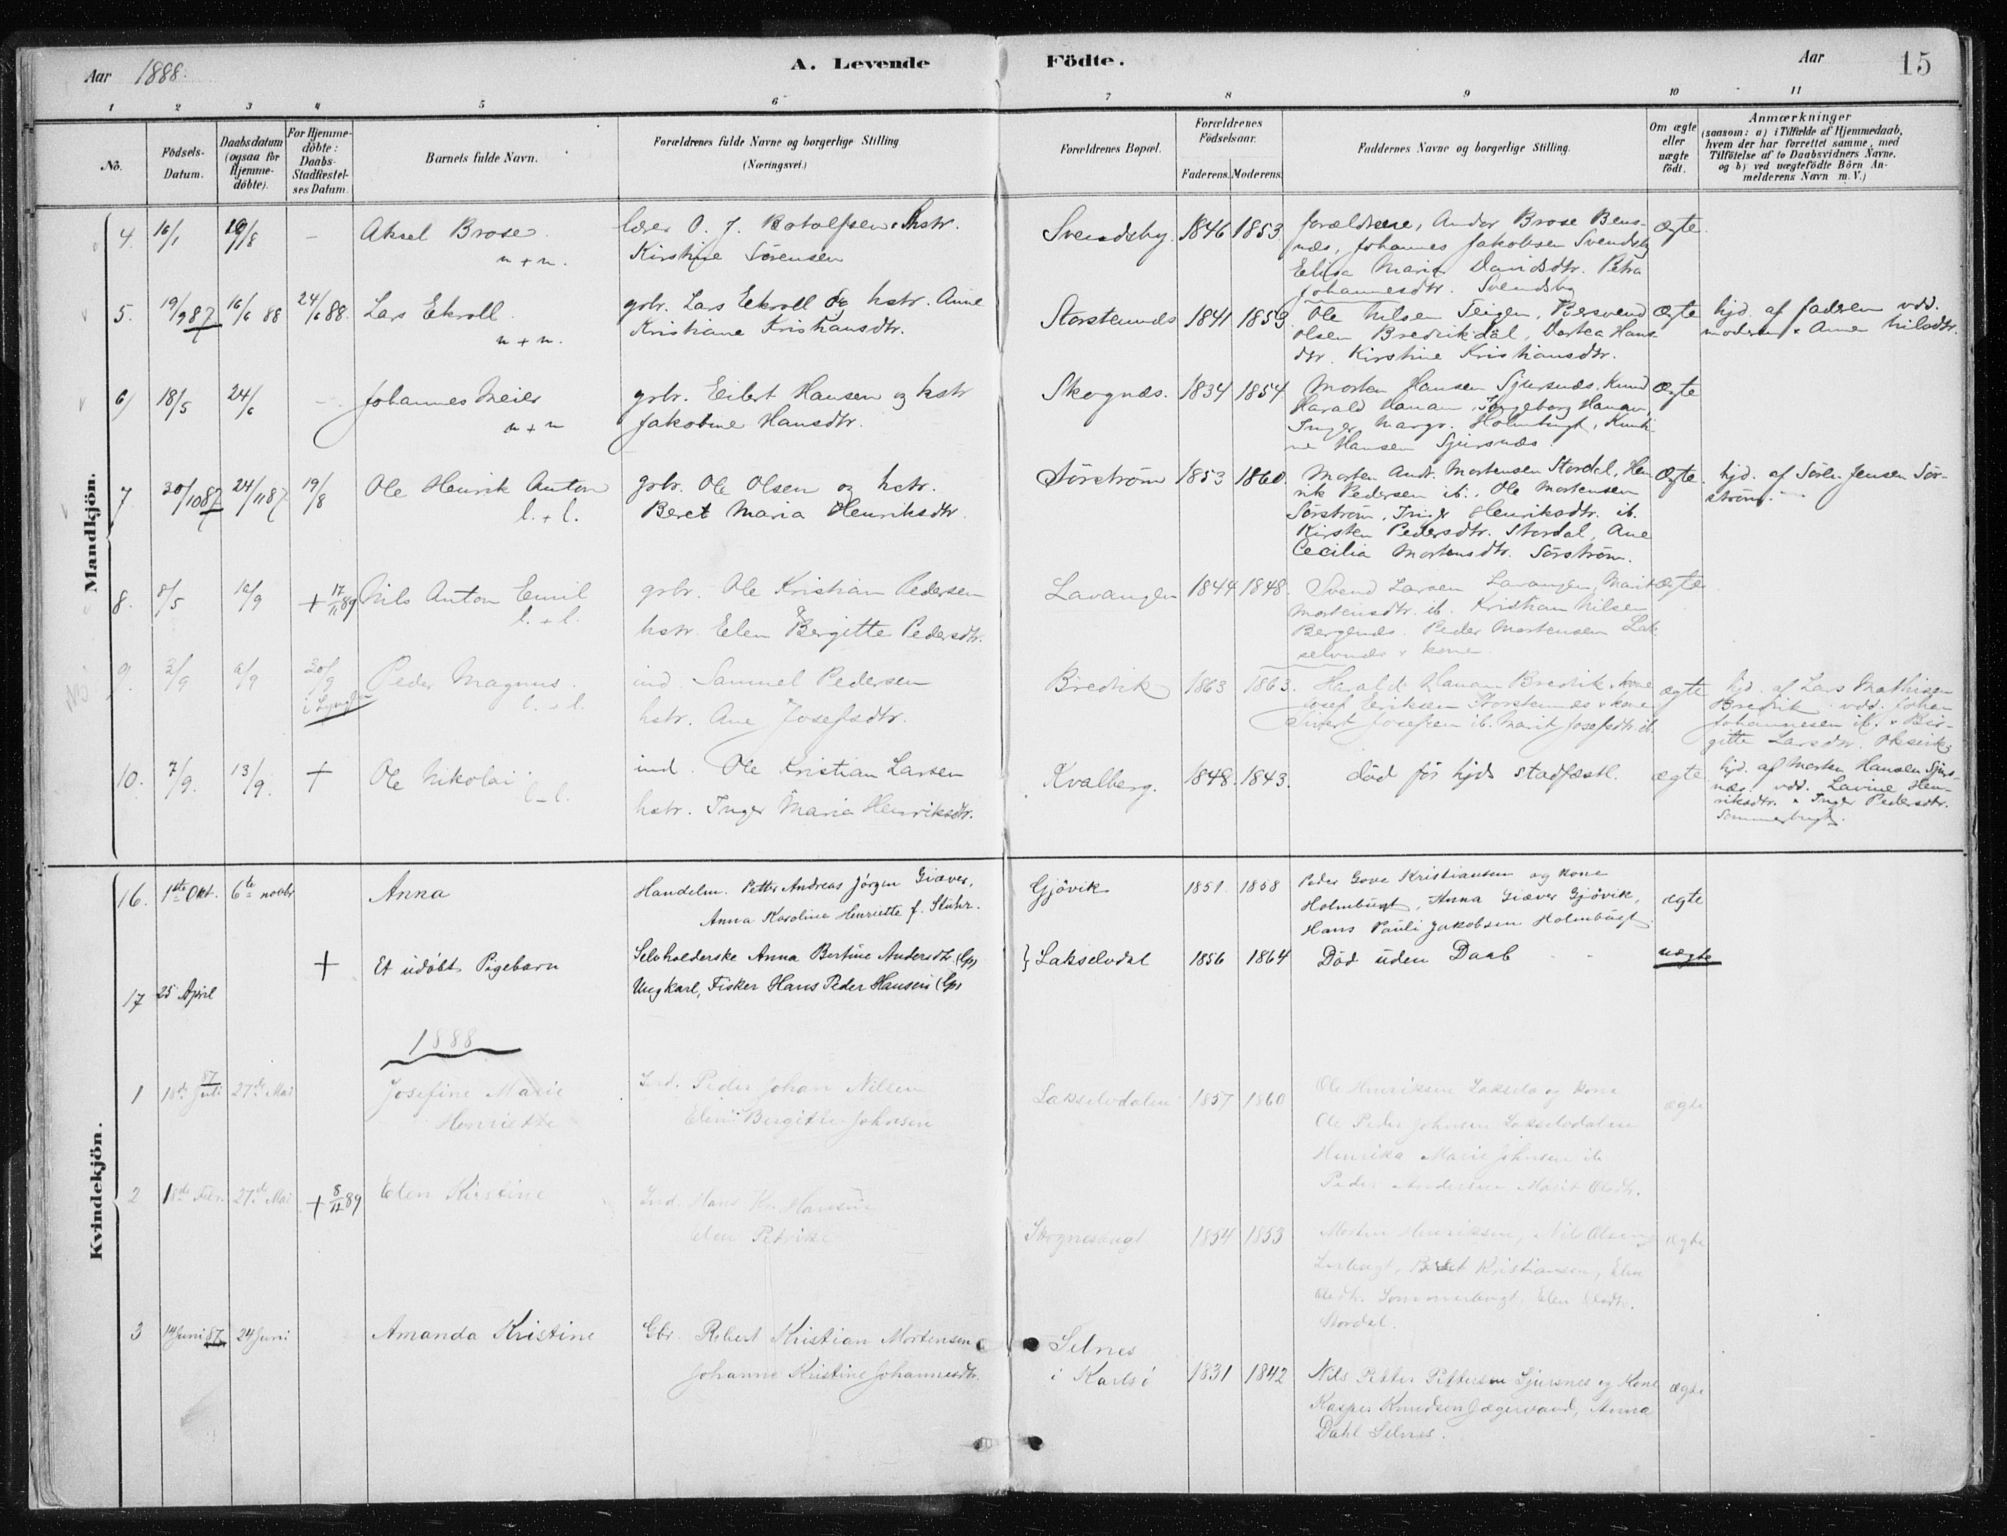 Aar 1888.
A. Levende Födte.
Aar 15
1 2 3 4 5 6 7 8 9 10 11
No.
Födsels-Datum.
Daabsdatum (ogsaa for Hjemme-döbte).
For Hjemme-döbte: Daabs-Stadfæstel-ses Datum.
Barnets fulde Navn.
Forældrenes fulde Navne og borgerlige Stilling (Næringsvei.)
Forældrenes Bopæl.
Forældrenes Födselsaar.
Faderens. Moderens.
Faddernes Navne og borgerlige Stilling.
Om ægte eller uægte födt.
Anmærkninger
(saasom: a) i Tilfælde af Hjemmedaab,
hvem der har forrettet samme, med
Tilföielse af to Daabsvidners Navne,
og b) ved uægtefödte Börn An-
melderens Navn m. V.)
Mandkjön.
4. 16/1 19/8 – Aksel Brose. n + n.
lærer O. J. Botolfsen & hstr.
Kirstine Sörensen
Svendsby. 1846 1853
forældrene, Andor Brose Bens-
næs, Johannes Jakobsen Svendsby
Elisa Maria Davidsdtr. Petra
Johannesdtr. Svendsby
ægte.
5. 19/9 87 16/6 88 24/6 88. Lars Ekroll. n + n.
grbr. Lars Eekroll og hstr. Anne
Kristiane Kristiansdtr.
Storsteinnæs 1841 1853
Ole Nilsen Teigen,
Olsen Bredrikdal, Dortea Hans
dtr. Kirstine Kristiansdtr.
ægte
hjd. af faderen vdd.
moderen & Anne Nilsdtr.
6) 18/5 24/6 – Johannes Meier n + n
grbr. Eilert Hansen og hstr
Jakobine Hansdtr.
Skognæs. 1834 1854
Morten Hansen Sjursnæs, Knud
Harald Hanan, Ingeborg Hanan,
Inger Margr. Holmbugt,
ne Hansen Sjursnæs.
ægte
7. 30/10 87 24/11 87 19/8 Ole Henrik Anton l. + l.
grbr. Ole Olsen og hstr.
Beret Maria Henriksdtr.
Sörström 1853 1860
Morten Andr. Mortensen Stordal, Hen
rik Pedersen ib., Ole Mortensen
Sörström, Inger Henriksdtr. ib.
Kirsten Pedersdtr. Stordal, Ane
Cecilia Mortensdtr. Sörström.
ægte.
hjd. af Sören Jensen Sör-
ström.
8. 8/5 16/9 + 17/11 89 Nils Anton Emil l. + l.
grbr. Ole Kristian Pedersen
hstr. Elen Bergitte Pedersdtr.
Lavangen 1844 1848.
Svend Larsen Lavangen, Marit
Mortensdtr. ib. Kristian Nilsen
Bergenæs. Peder Mortensen Lak
selvnæs & kone
ægte
9. 3/9 9/9 30/9 i Lyngs Peder Magnus. l. + l.
ind. Samuel Pedersen
hstr. Ane Josefsdtr.
Bredvik 1863 1863.
Harald Hanan Bredvik, kone
Josef Eriksen Storstennæs & kone
Sivert Josefsen ib. Marit Josefsdtr. ib.
ægte
hjd. af Lars Mathisen
Bredvik vdd. Johan
Johannesen ib. & Bir-
gitte Larsdtr.
10. 7/9. 13/9. + Ole Nikolai l – l.
ind. Ole Kristian Larsen
hstr. Inger Maria Henriksdtr.
Kvalberg. 1848. 1843.
död för hjds stadfæstl.
ægte
hjd. af Morten Hansen Sjurs-
næs, vdd. Lavine Hen-
riksdtr. & Inger Pedersdtr.
Sommerbugt.
Kvindekjön.
16. 1ste Okt. 6te novbr. Anna
Handelm. Petter Andreas Jörgen Giæver,
Anna Karoline Henriette f. Stuhr.
Gjövik 1851. 1858
Peder Gove Kristiansen og kone
Holmbugt, Anna Giæver Gjövik,
Hans Pauli Jakobsen Holmbugt
ægte
17 25 April + Et udöbt Pigebarn
Selvholderske Anna Bertine Andersdtr. (Gp)
Ungkarl, Fisker Hans Peder Hansen (Gp)
} Lakselvdal 1856 1864
Död uden Daab
uægte
1888
1 18de Juli 87 27de Mai Josefine Marie
Henriette
Ind. Peder Johan Nilsen
Elen Bergitte Johnsen
Lakselvdalen 1857 1860
Ole Henriksen Lakselv og kone
Ole Peder Johnsen Lakselvdalen
Henrika Marie Johnsen ib
Peder Andersen Marit Olsdtr.
ægte
2 18de Febr. 27de Mai + 8/12 89 Elen Kirstine
Ind. Hans Kr. Hansen
Elen Petrike
Skognesbugt 1854 1853
Morten Henriksen, Nils Olsen
Lerbugt, Berit Kristiansen, Elen
Olsdtr. Sommerbugt. Elen Olsdtr.
Stordal.
ægte
3 14 Juni 87 24 Juni Amanda Kristine
Gbr. Robert Kristian Mortensen
Johanne Kristine Johannesdtr.
Selnes
i Karlsö 1831 1842
Nils Petter Pettersen Sjursnes og Kone
Kasper Knudsen Jægervand, Anna
Dahl Selnes.
ægte